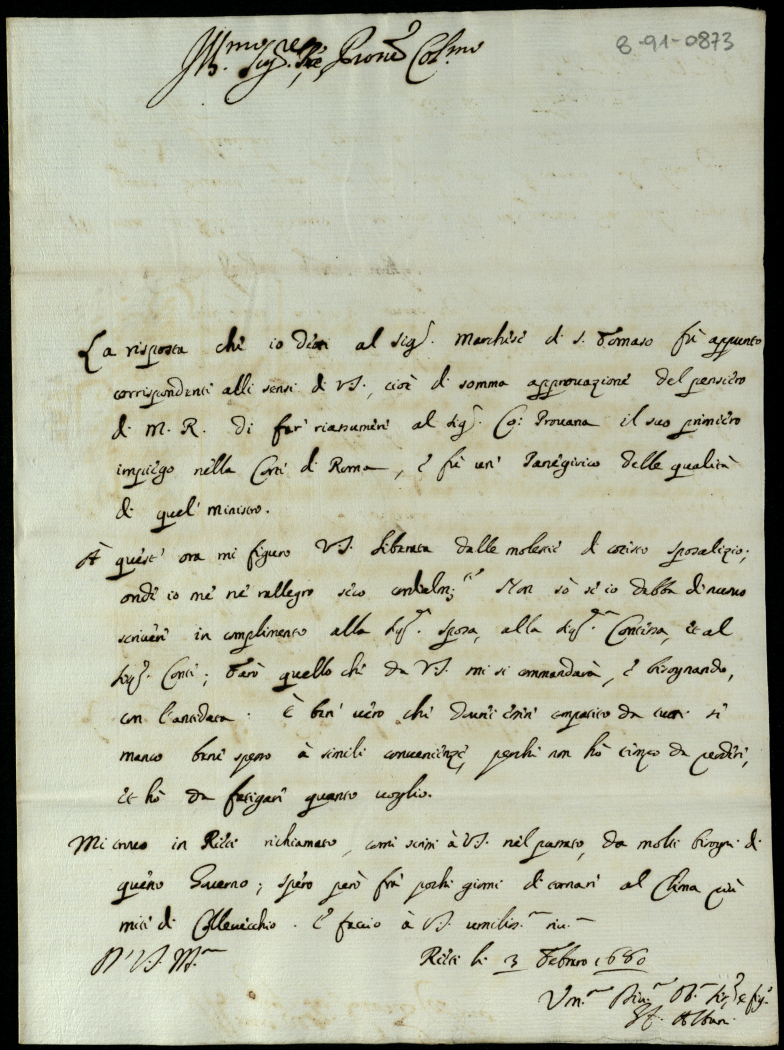 8-91-0873
Ill.mo Sig.re Pre, e Prone Col.mo
La risposta che io diedi al Sig.r Marchese di S. Tomaso fù appunto
corrispondente alli sensi di V.S., cioè di somma approvazione del pensiero
di M. R. di far riassumere al Sig.r Co: Provana il suo primiero
impiego nella Corte di Roma, e fù un' Panegirico delle qualità
di quel' ministro.
A quest' ora mi figuro V.S. liberata dalle molestie di cotesto sposalizio;
onde io me ne rallegro seco cordialm:te Non sò se io debba di nuovo
scrivere in complimento alla Sig.ra sposa, alla Sig.ra Contessa, et al
Sig.r Conte; Farò quello che da V.S. mi si commandarà, e bisognando,
con l'antidata. È ben' vero che dovrei esser compatito da tutti se
manco bene spesso à simili convenienze, perche non hò tempo da perdere,
et hò da fatigare quanto voglio.
Mi trovo in Rieti richiamato, come scrissi à V.S. nel passato, da molti bisogni di
questo Governo; spero però frà pochi giorni di tornare al Clima più
mite di Collevecchio. E faccio à V.S. umiliss.ma riv.za
D' V.S. Ill.ma
Rieti li 3 Febraro 1680
Um.mo Div.mo Ob.mo Ser.re e fig.lo
Albani